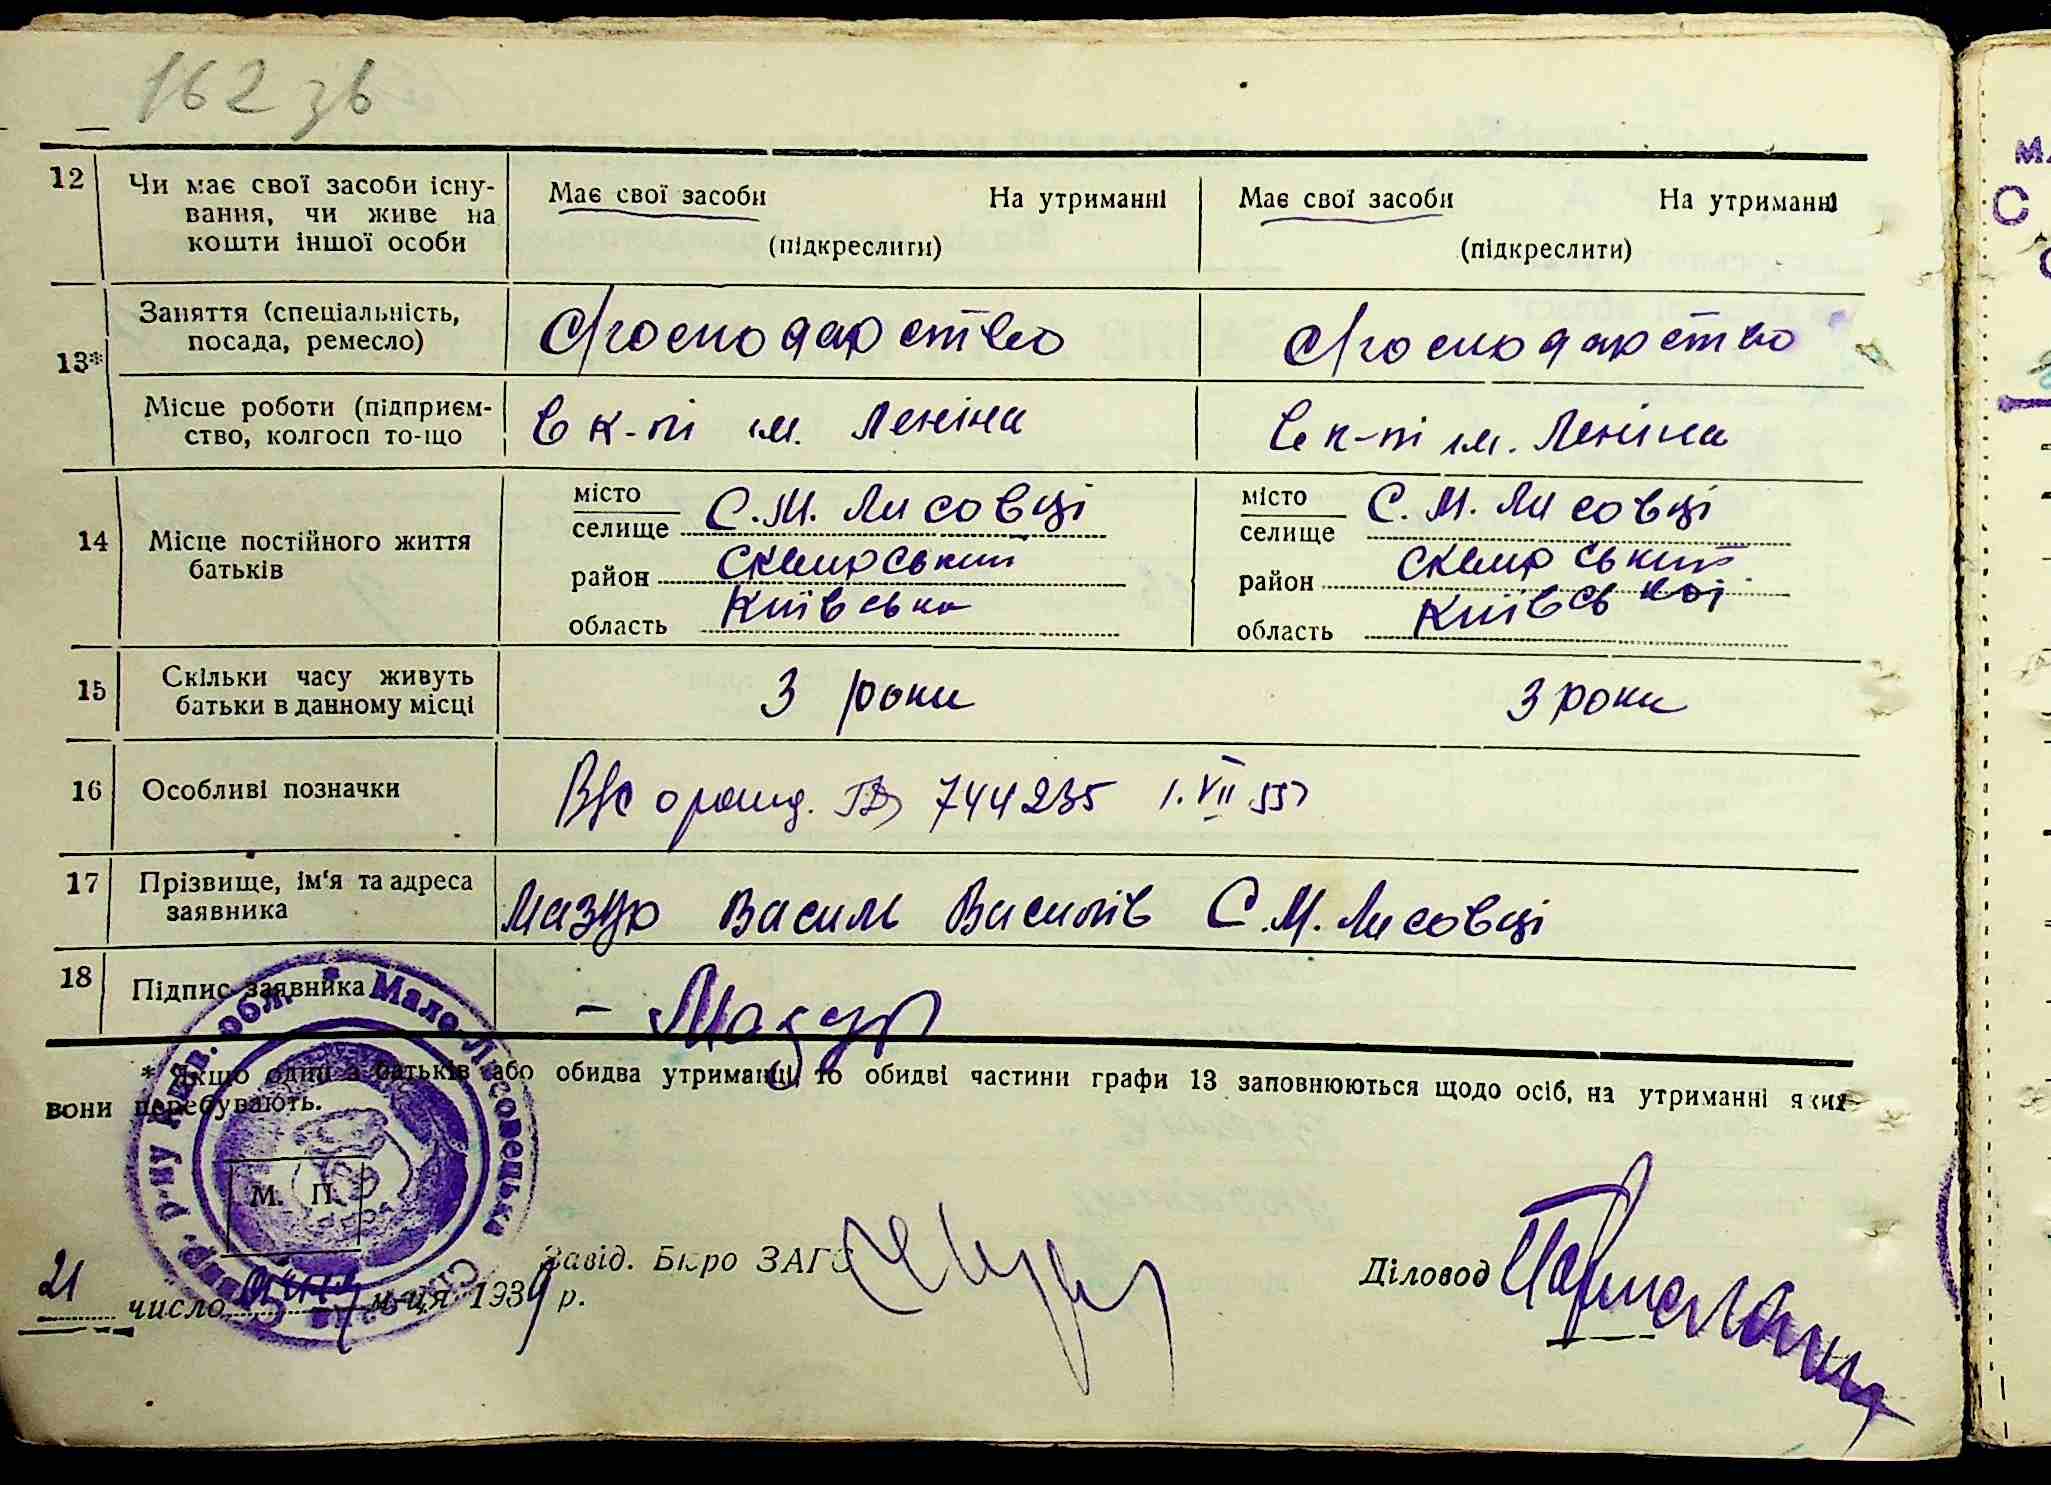 162 зв
12 Чи має свої засоби існу-
вання, чи живе на
кошти іншої особи
Має свої засоби На утриманні
(підкреслити)
Має свої засоби На утриманні
(підкреслити)
13*
Заняття (спеціальність,
посада, ремесло)
Господарство
Господарство
Місце роботи (підприєм-
ство, колгосп то-що
В к-пі ім. Леніна
В к-пі ім. Леніна
14 Місце постійного життя
батьків
місто
селище С. М. Лисовці
район сквирський
область Київська
місто
селище С. М. Лисовці
район сквирський
область Київської
15 Скільки часу живуть
батьки в данному місці
3 роки
3 роки
16 Особливі позначки
744235 1.VII
17 Прізвище, ім'я та адреса
заявника
Мазур Василь Василів С. М. Лисовці
18 Підпис заявника
– Мазур
* Якщо один з батьків або обидва утриманці, то обидві частини графи 13 заповнюються щодо осіб, на утриманні яких
вони перебувають.
Мало-Лисовецька
р-ну Київ. обл.
М. П.
Завід. Бюро ЗАГС
Діловод
21 число м-ця 1939 р.